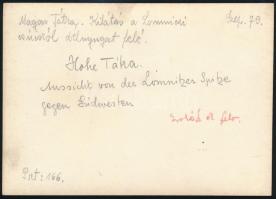 Magas Tátra. Kilátás a Lomnici
csúcsról délnyugat felé.
Hohe Tátra.
Aussicht von der Lomnitzer Spitze
gegen Südwesten